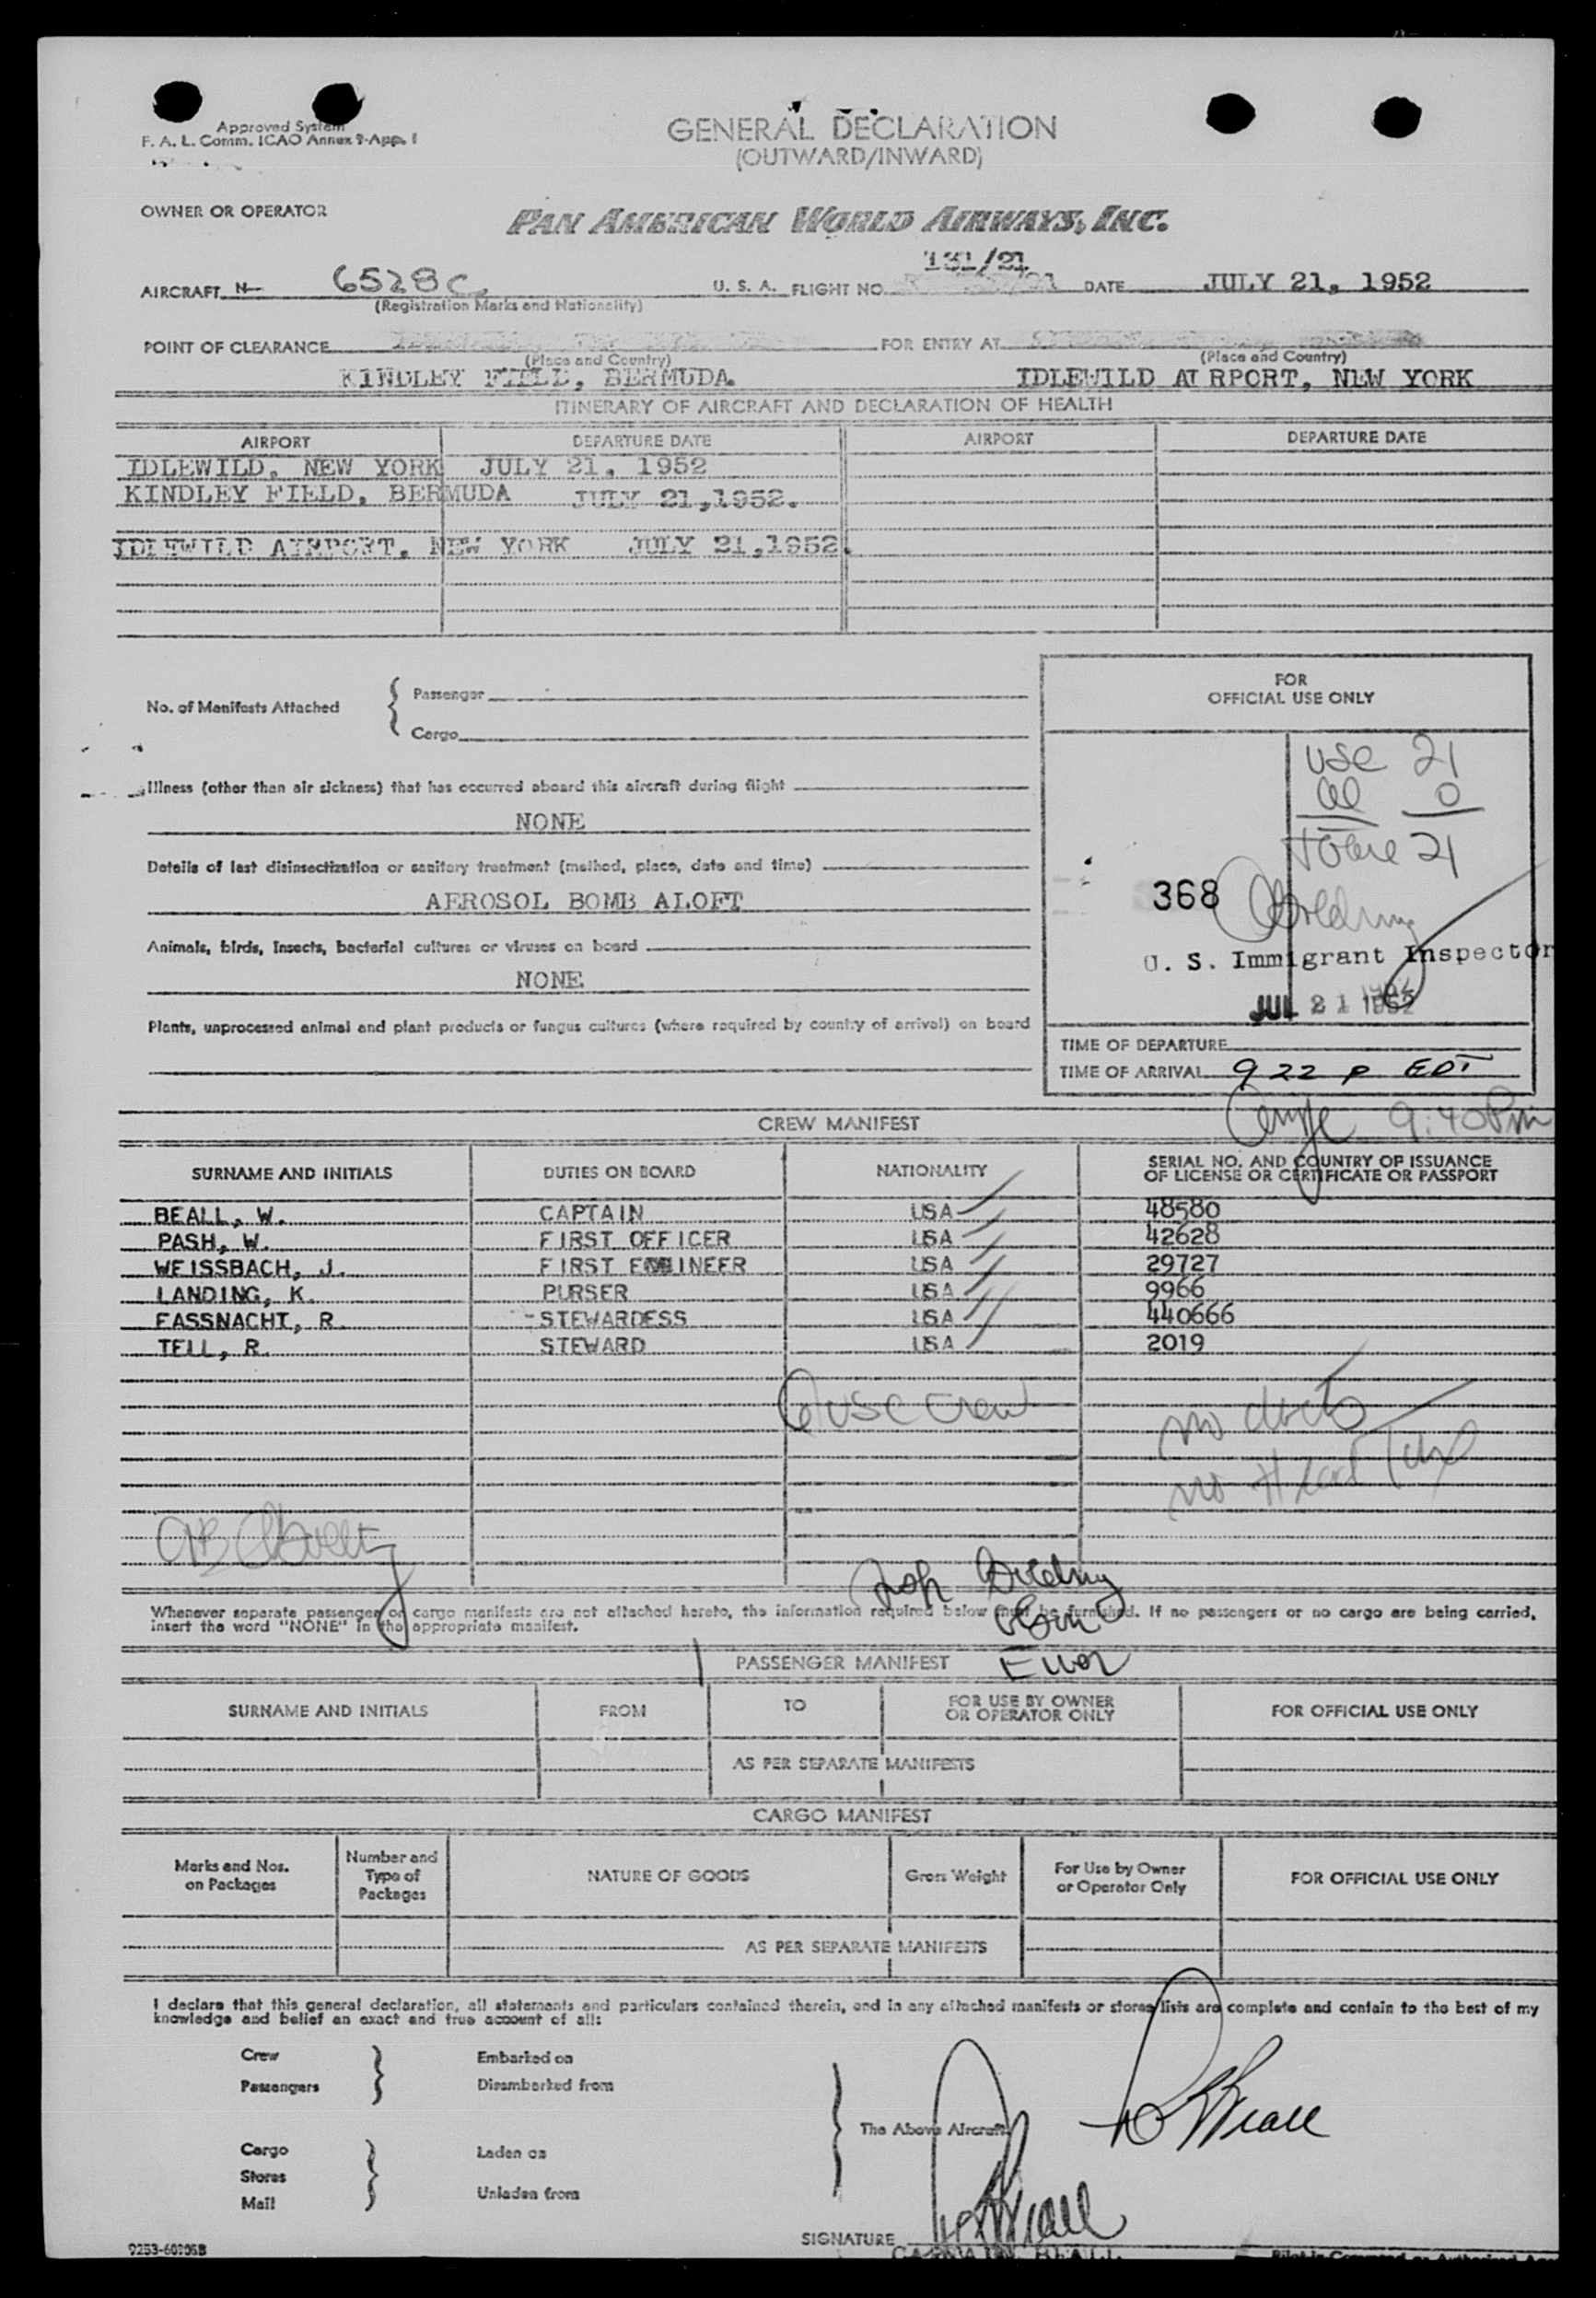 Approved System
F. A. L. Comm. ICAO Annex 9-App. 1
GENERAL DECLARATION
(OUTWARD/INWARD)
OWNER OR OPERATOR
PAN AMERICAN WORLD AIRWAYS, INC.
131/21
AIRCRAFT N- 6528C U. S. A. FLIGHT NO. DATE JULY 21, 1952
(Registration Marks and Nationality)
POINT OF CLEARANCE FOR ENTRY AT
(Place and Country) (Place and Country)
KINDLEY FIELD, BERMUDA. IDLEWILD AIRPORT, NEW YORK
ITINERARY OF AIRCRAFT AND DECLARATION OF HEALTH
AIRPORT DEPARTURE DATE AIRPORT DEPARTURE DATE
IDLEWILD, NEW YORK JULY 21, 1952
KINDLEY FIELD, BERMUDA JULY 21,1952.
IDLEWILD AIRPORT, NEW YORK JULY 21,1952.
FOR
OFFICIAL USE ONLY
No. of Manifests Attached { Passenger
Cargo
USC 21
al 0
Total 21
Illness (other than air sickness) that has occurred aboard this aircraft during flight
NONE
Details of last disinsectization or sanitary treatment (method, place, date and time)
AEROSOL BOMB ALOFT
368
Animals, birds, insects, bacterial cultures or viruses on board
U. S. Immigrant Inspector
NONE
JUL 21 1952
Plants, unprocessed animal and plant products or fungus cultures (where required by country of arrival) on board
TIME OF DEPARTURE
TIME OF ARRIVAL 9 22 P EDT
9:40 PM
CREW MANIFEST
SURNAME AND INITIALS DUTIES ON BOARD NATIONALITY SERIAL NO. AND COUNTRY OF ISSUANCE
OF LICENSE OR CERTIFICATE OR PASSPORT
BEALL, W. CAPTAIN USA 48580
PASH, W. FIRST OFFICER USA 42628
WEISSBACH, J. FIRST ENGINEER USA 29727
LANDING, K. PURSER USA 9966
FASSNACHT, R. STEWARDESS USA 440666
TELL, R. STEWARD USA 2019
6 USC Crew
no docts
no Head Tax
Whenever separate passenger or cargo manifests are not attached hereto, the information required below must be furnished. If no passengers or no cargo are being carried,
insert the word "NONE" in the appropriate manifest.
PASSENGER MANIFEST
SURNAME AND INITIALS FROM TO FOR USE BY OWNER
OR OPERATOR ONLY FOR OFFICIAL USE ONLY
AS PER SEPARATE MANIFESTS
CARGO MANIFEST
Marks and Nos.
on Packages Number and
Type of
Packages NATURE OF GOODS Gross Weight For Use by Owner
or Operator Only FOR OFFICIAL USE ONLY
AS PER SEPARATE MANIFESTS
I declare that this general declaration, all statements and particulars contained therein, and in any attached manifests or stores lists are complete and contain to the best of my
knowledge and belief an exact and true account of all:
Crew Embarked on
Passengers Disembarked from
The Above Aircraft
W Beall
Cargo Laden on
Stores
Mail Unladen from
W Beall
SIGNATURE
CAPTAIN BEALL
9253-60205B